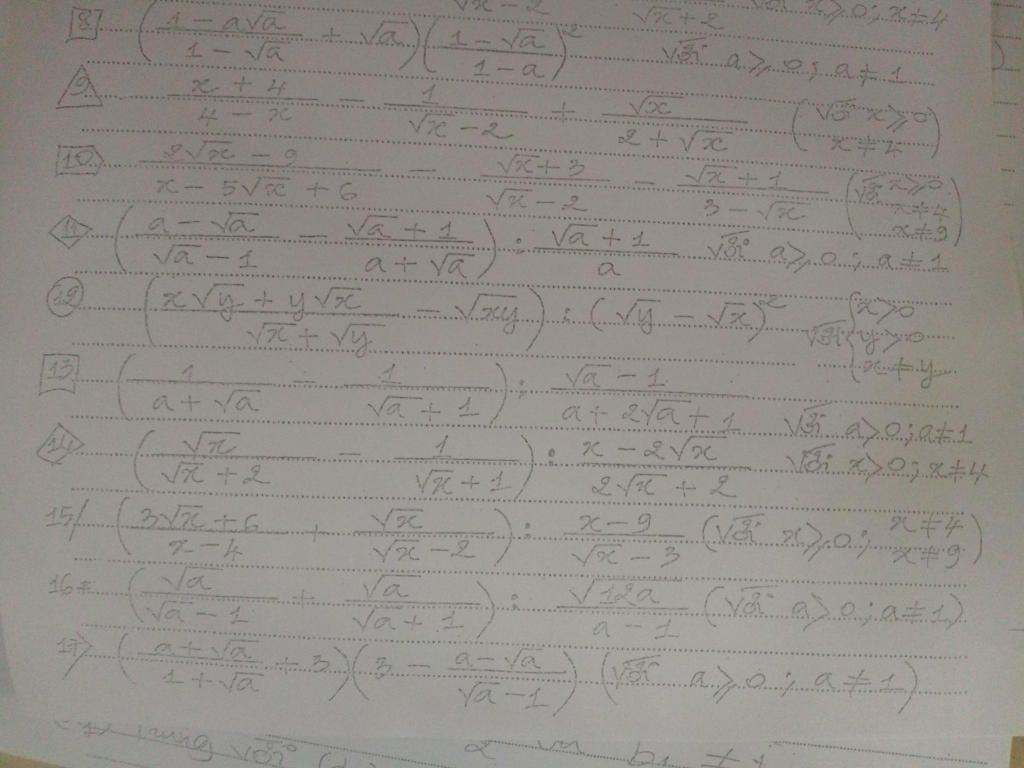 √x − 2 √x + 2 với x ≥ 0; x ≠ 4
8 ((1 − a√a)/(1 − √a) + √a)((1 − √a)/(1 − a))² với a ≥ 0; a ≠ 1
9 (x + 4)/(4 − x) − 1/(√x − 2) + √x/(2 + √x) (với x ≥ 0 x ≠ 4)
10 (2√x − 9)/(x − 5√x + 6) − (√x + 3)/(√x − 2) − (√x + 1)/(3 − √x) (với x ≥ 0 x ≠ 4 x ≠ 9)
11 ((a − √a)/(√a − 1) − (√a + 1)/(a + √a)) : (√a + 1)/a với a ≥ 0; a ≠ 1
12 ((x√y + y√x)/(√x + √y) − √xy) : (√y − √x)² với {x > 0 y > 0 x ≠ y
13 (1/(a + √a) − 1/(√a + 1)) : (√a − 1)/(a + 2√a + 1) với a > 0; a ≠ 1
14 (√x/(√x + 2) − 1/(√x + 1)) : (x − 2√x)/(2√x + 2) với x > 0; x ≠ 4
15/ ((3√x + 6)/(x − 4) + √x/(√x − 2)) : (x − 9)/(√x − 3) (với x ≥ 0; x ≠ 4 x ≠ 9)
16* (√a/(√a − 1) + √a/(√a + 1)) : √12a/(a − 1) (với a > 0; a ≠ 1)
17> ((a + √a)/(1 + √a) + 3)(3 − (a − √a)/(√a − 1)) (với a ≥ 0; a ≠ 1)